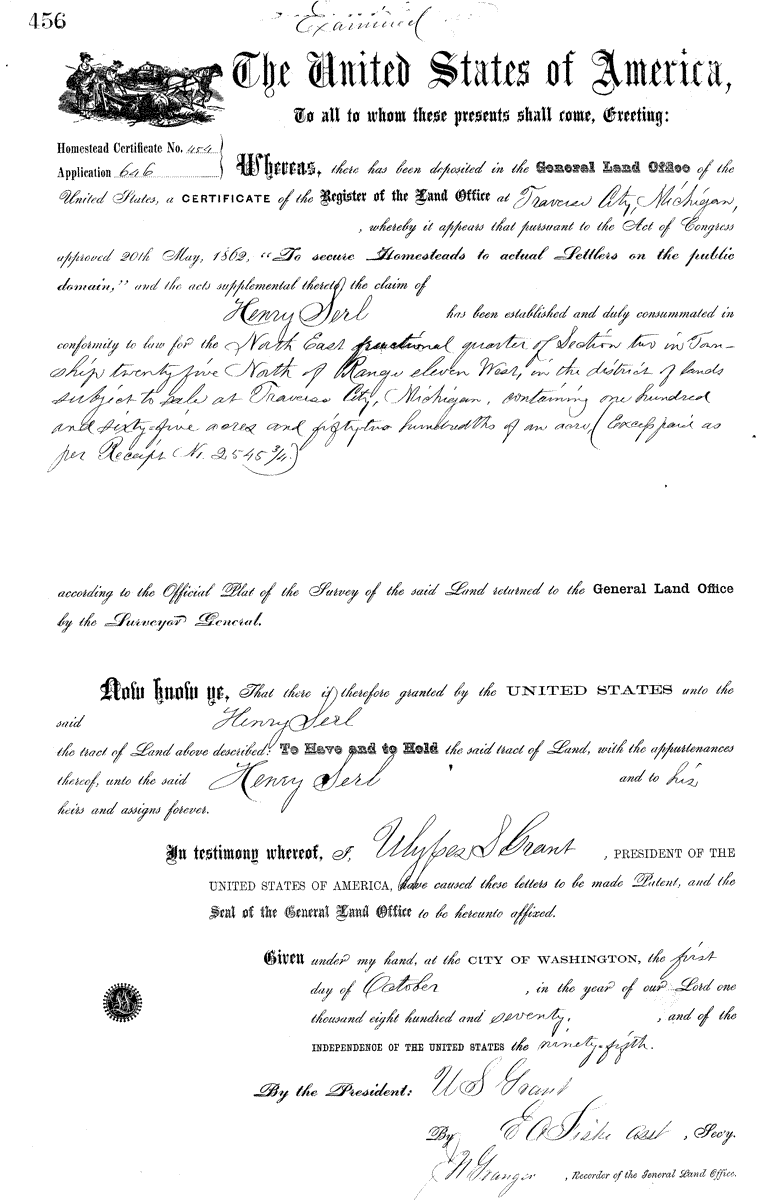 456
Examined
The United States of America,
To all to whom these presents shall come, Greeting:
Homestead Certificate No. 454
Application 646
Whereas, there has been deposited in the General Land Office of the
United States, a CERTIFICATE of the Register of the Land Office at Traverse City, Michigan,
, whereby it appears that pursuant to the Act of Congress
approved 20th May, 1862, "To secure Homesteads to actual Settlers on the public
domain," and the acts supplemental thereto, the claim of
Henry Serl has been established and duly consummated in
conformity to law for the North East fractional quarter of Section two in Town-
ship twenty five North of Range eleven West, in the district of lands
subject to sale at Traverse City, Michigan, containing one hundred
and sixty-five acres and fifty two hundredths of an acre, (Excess paid as
per Receipt No. 2545 3/4.)
according to the Official Plat of the Survey of the said Land returned to the General Land Office
by the Surveyor General.
Now know ye, That there is therefore granted by the UNITED STATES unto the
said Henry Serl
the tract of Land above described: To Have and to Hold the said tract of Land, with the appurtenances
thereof, unto the said Henry Serl and to his
heirs and assigns forever.
In testimony whereof, I, Ulysses S Grant, PRESIDENT OF THE
UNITED STATES OF AMERICA, have caused these letters to be made Patent, and the
Seal of the General Land Office to be hereunto affixed.
Given under my hand, at the CITY OF WASHINGTON, the first
day of October, in the year of our Lord one
thousand eight hundred and seventy, and of the
INDEPENDENCE OF THE UNITED STATES the ninety-fifth.
By the President: U S Grant
By E A Fiske asst, Sec'y.
J N Granger, Recorder of the General Land Office.